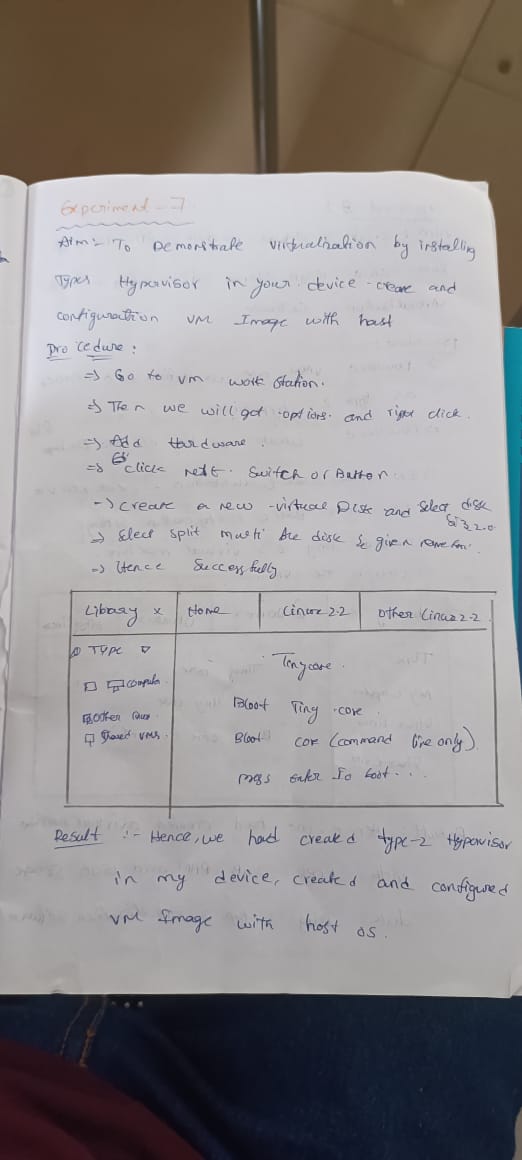 Experiment - 7
Aim :- To Demonstrate virtualization by installing
Type2 Hypervisor in your device - create and
configuration VM Image with host
Procedure :
=> Go to vm work station.
=> Then we will got options and right click.
=> Add Hardware.
=> click next. Switch or Button
-> Create a new -virtual Disk and select disk
size 2.0
=> select split disk & given
=> Hence Successfully
Library x Home Linux 2.2 Other Linux 2.2
TYPE
Tinycore.
computer
Boot Tiny core
Other
Shared VMs.
Boot core (command line only)
press enter to boot . . .
Result :- Hence, we had created type-2 Hypervisor
in my device, created and configured
VM Image with host os.